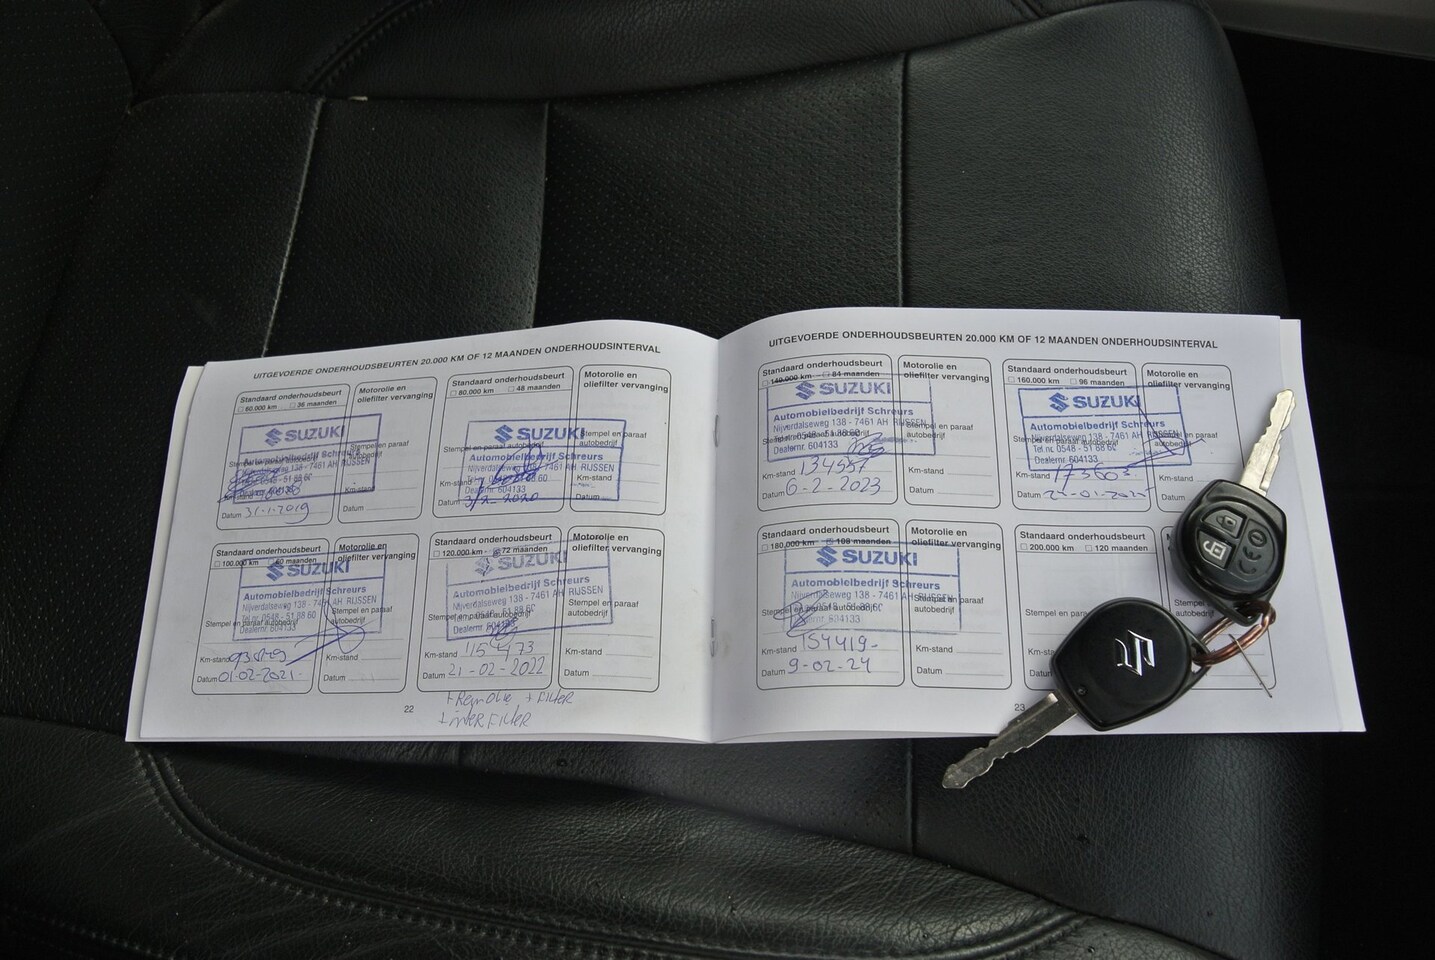 UITGEVOERDE ONDERHOUDSBEURTEN 20.000 KM OF 12 MAANDEN ONDERHOUDSINTERVAL
Standaard onderhoudsbeurt
60.000 km 36 maanden
Motorolie en
oliefilter vervanging
SUZUKI
Automobielbedrijf Schreurs
Nijverdalseweg 138 - 7461 AH RIJSSEN
Stempel en paraaf autobedrijf
Km-stand
Datum 31-1-2019
Stempel en paraaf
autobedrijf
Km-stand
Datum
Standaard onderhoudsbeurt
80.000 km 48 maanden
Motorolie en
oliefilter vervanging
SUZUKI
Automobielbedrijf Schreurs
Nijverdalseweg 138 - 7461 AH RIJSSEN
Dealernr. 604133
Km-stand
Datum 3/2-2020
Stempel en paraaf
autobedrijf
Km-stand
Datum
Standaard onderhoudsbeurt
100.000 km 60 maanden
Motorolie en
oliefilter vervanging
SUZUKI
Automobielbedrijf Schreurs
Nijverdalseweg 138 - 7461 AH RIJSSEN
Tel.nr. 0548 - 51 88 60
Stempel en paraaf autobedrijf
Dealernr. 604133
Km-stand
Datum 01-02-2021
Stempel en paraaf
autobedrijf
Km-stand
Datum
Standaard onderhoudsbeurt
120.000 km 72 maanden
Motorolie en
oliefilter vervanging
SUZUKI
Automobielbedrijf Schreurs
Nijverdalseweg 138 - 7461 AH RIJSSEN
Stempel en paraaf autobedrijf
Dealernr. 604133
Km-stand 115473
Datum 21-02-2022
Stempel en paraaf
autobedrijf
Km-stand
Datum
+ Remolie + Filter
+ inter Filter
22
UITGEVOERDE ONDERHOUDSBEURTEN 20.000 KM OF 12 MAANDEN ONDERHOUDSINTERVAL
Standaard onderhoudsbeurt
140.000 km 84 maanden
Motorolie en
oliefilter vervanging
SUZUKI
Automobielbedrijf Schreurs
Nijverdalseweg 138 - 7461 AH RIJSSEN
Dealernr. 604133
Km-stand 134557
Datum 6-2-2023
Km-stand
Datum
Standaard onderhoudsbeurt
160.000 km 96 maanden
Motorolie en
oliefilter vervanging
SUZUKI
Automobielbedrijf Schreurs
Nijverdalseweg 138 - 7461 AH RIJSSEN
Tel.nr. 0548 - 51 88 60
Dealernr. 604133
Km-stand 173603
Datum
Km-stand
Standaard onderhoudsbeurt
180.000 km 108 maanden
Motorolie en
oliefilter vervanging
SUZUKI
Automobielbedrijf Schreurs
Nijverdalseweg 138 - 7461 AH RIJSSEN
Stempel en paraaf autobedrijf
Dealernr. 604133
Km-stand 154419-
Datum 9-02-24
Stempel en paraaf
autobedrijf
Km-stand
Datum
Standaard onderhoudsbeurt
200.000 km 120 maanden
Stempel en paraaf
Km-stand
23